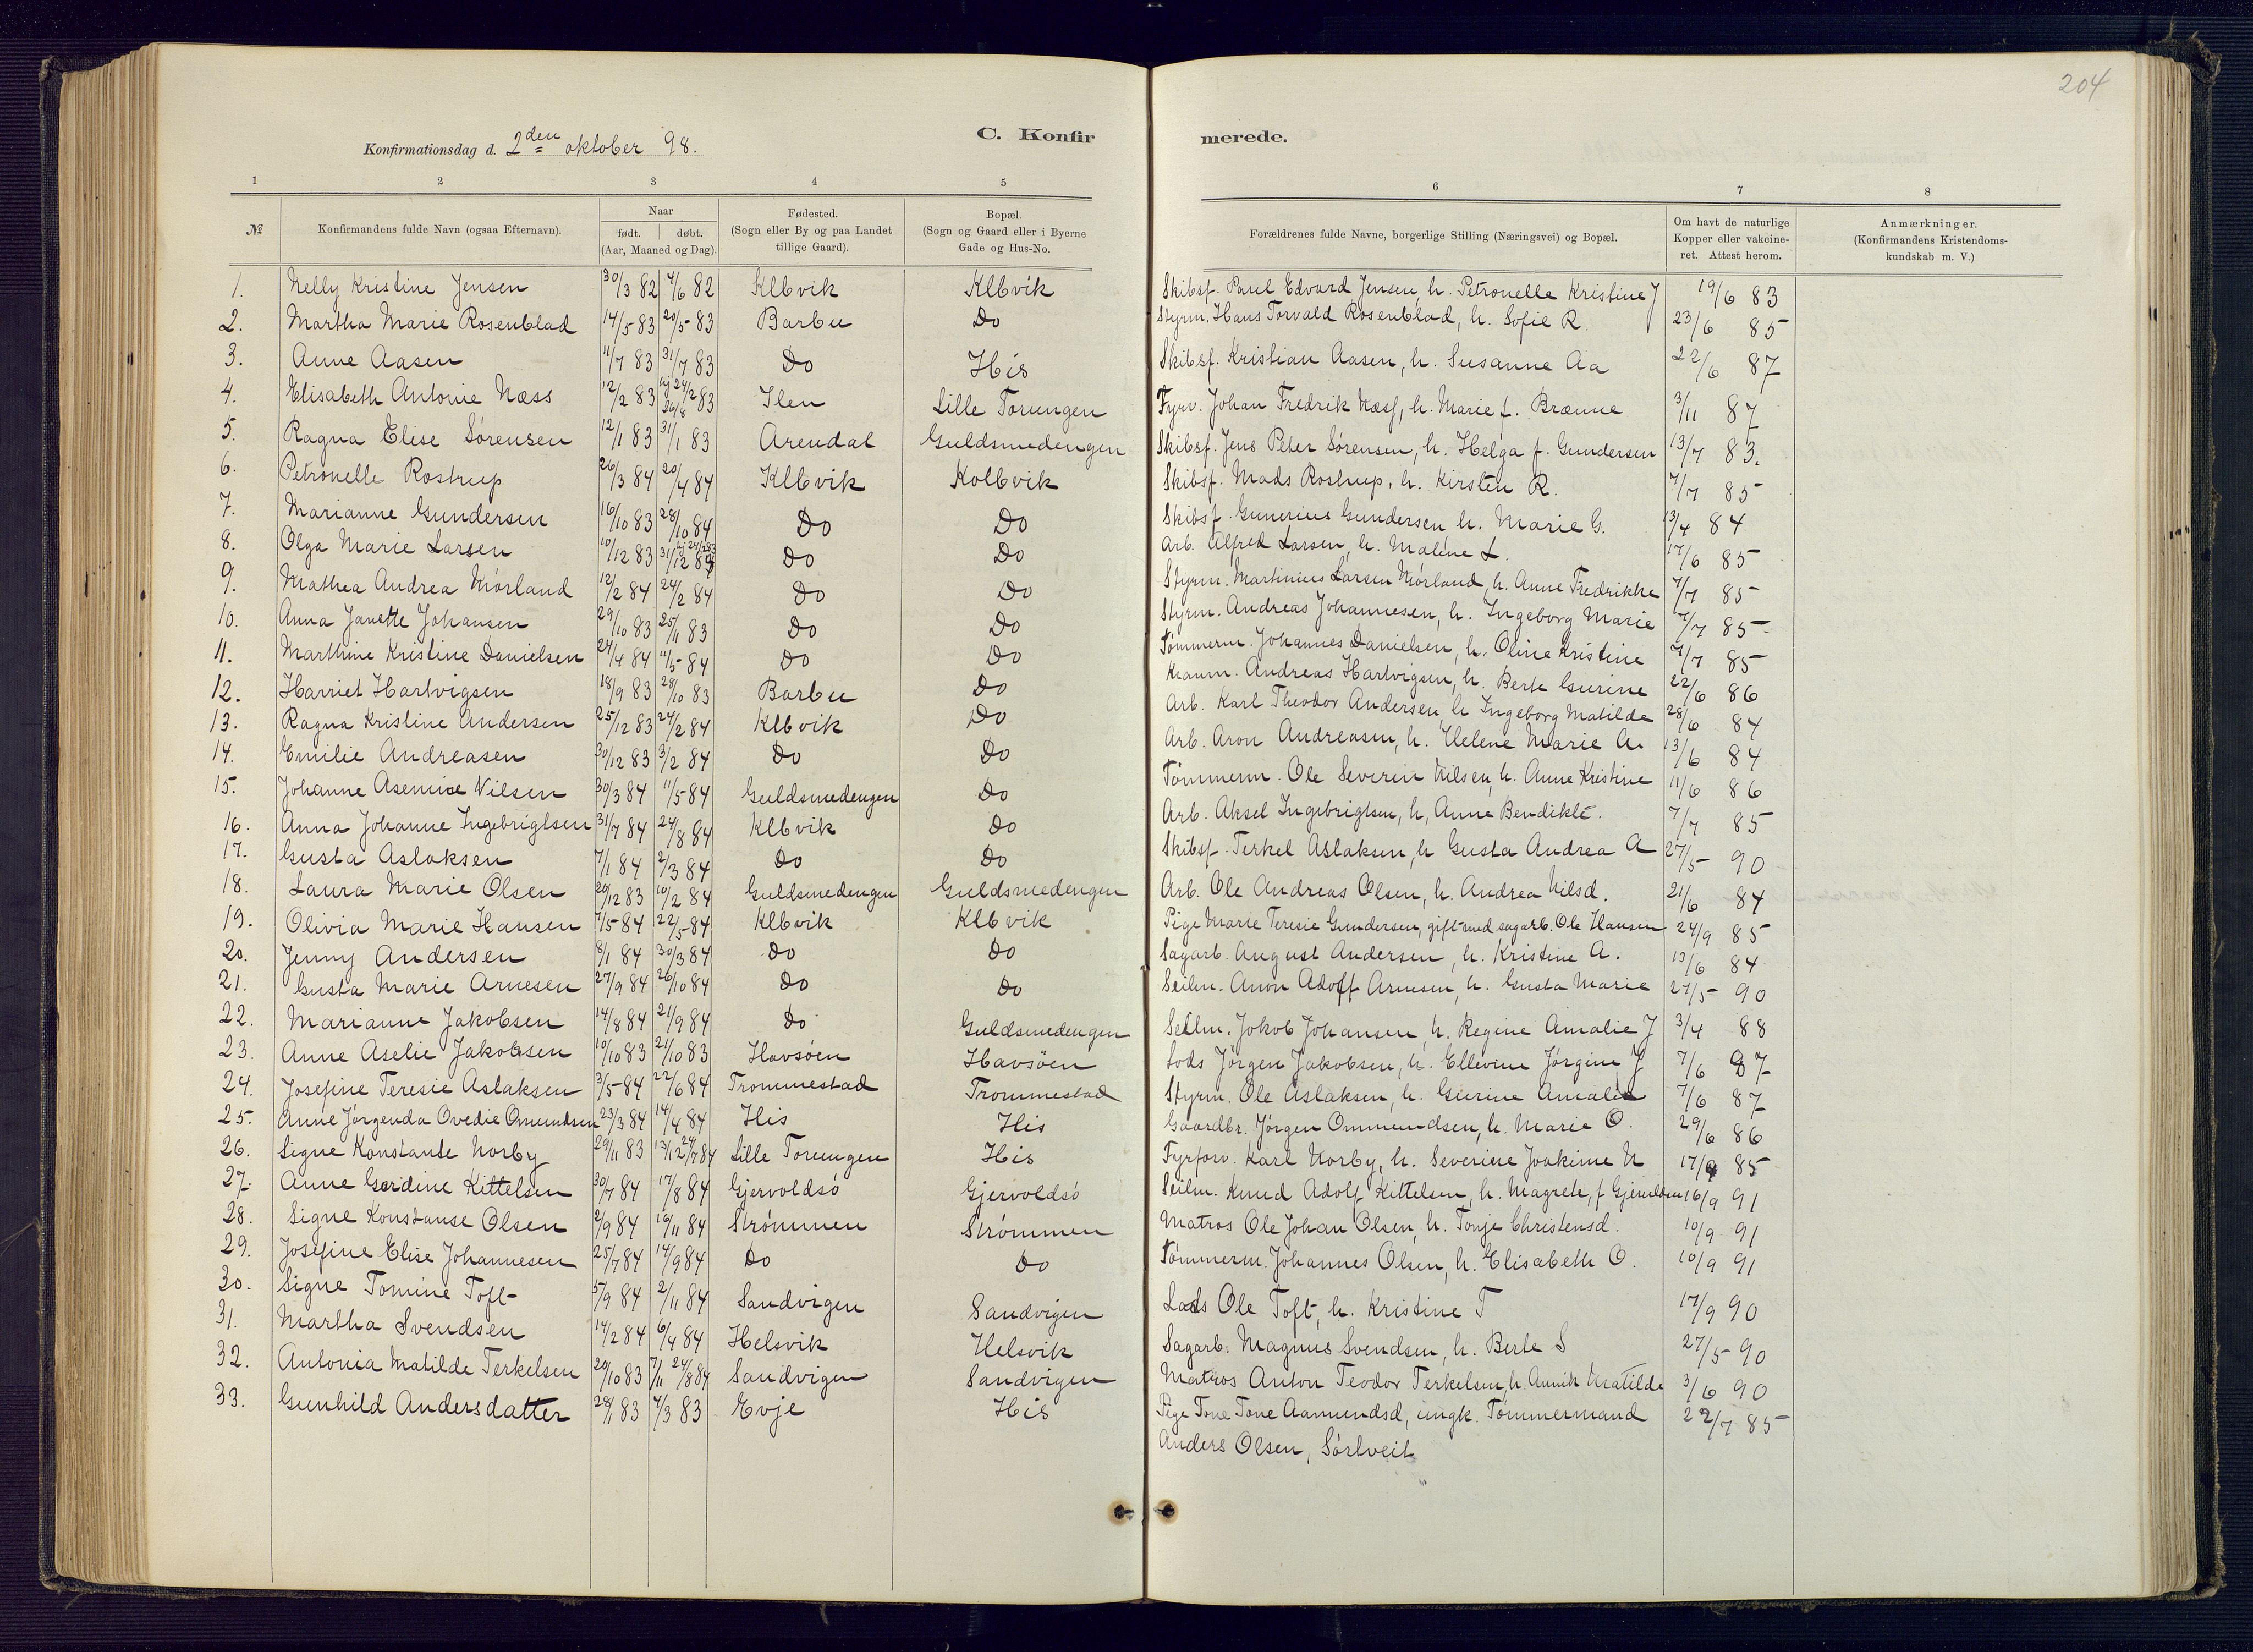 204
C. Konfirmerede.
Konfirmationsdag d. 2den oktober 98.
1 2 3 4 5 6 7 8
№ Konfirmandens fulde Navn (ogsaa Efternavn). Naar født. døbt. (Aar, Maaned og Dag). Fødested. (Sogn eller By og paa Landet tillige Gaard). Bopæl. (Sogn og Gaard eller i Byerne Gade og Hus-No. Forældrenes fulde Navne, borgerlige Stilling (Næringsvei) og Bopæl. Om havt de naturlige Kopper eller vakcineret. Attest herom. Anmærkninger. (Konfirmandens Kristendomskundskab m. V.)
1. Nelly Kristine Jensen 30/3 82 4/6 82 Klbvik Klbvik Skibsf. Paul Edvard Jensen, h. Petronelle Kristine J 19/6 83
2. Martha Marie Rosenblad 14/5 83 20/5 83 Barbu Do Styrm. Hans Torvald Rosenblad, h. Sofie R. 23/6 85
3. Anne Aasen 11/7 83 31/7 83 Do His Skibsf. Kristian Aasen, h. Susanne Aa 22/6 87
4. Elisabeth Antonie Næss 12/2 83 hj 24/2 26/8 83 Ilen Lille Torungen Fyrv. Johan Fredrik Næss, h. Marie f. Brænne 3/11 87
5. Ragna Elise Sørensen 12/1 83 31/1 83 Arendal Guldsmedengen Skibsf. Jens Peter Sørensen, h. Helga f. Gundersen 13/7 83.
6. Petronelle Rostrup 26/3 84 20/4 84 Klbvik Kolbvik Skibsf. Mads Rostrup, h. Kirsten R. 7/7 85
7. Marianne Gundersen 16/10 83 28/10 84 Do Do Skibsf. Gunerius Gundersen h. Marie G. 13/4 84
8. Olga Marie Larsen 10/12 83 31/12 83 Do Do Arb. Alfred Larsen, h. Malene L. 17/6 85
9. Mathea Andrea Mørland 12/2 84 24/2 84 Do Do Styrm. Martinius Larsen Mørland, h. Anne Fredrikke 7/7 85
10. Anna Janette Johansen 29/10 83 25/11 83 Do Do Styrm. Andreas Johannesen, h. Ingeborg Marie 7/7 85
11. Marthine Kristine Danielsen 24/4 84 11/5 84 Do Do Tømmerm. Johannes Danielsen, h. Oline Kristine 7/7 85
12. Harriet Hartvigsen 18/9 83 28/10 83 Barbu Do Andreas Hartvigsen, h. Berte Gurine 22/6 86
13. Ragna Kristine Andersen 25/12 83 24/2 84 Klbvik Do Arb. Karl Theodor Andersen, h Ingeborg Matilde 28/6 84
14. Emilie Andreasen 30/12 83 3/2 84 Do Do Arb. Aron Andreasen, h. Helene Marie A. 13/6 84
15. Johanne Asemine Nilsen 30/3 84 11/5 84 Guldsmedengen Do Tømmerm. Ole Severin Nilsen, h. Anne Kristine 11/6 86
16. Anna Johanne Ingebrigtsen 31/7 84 24/8 84 Klbvik Do Arb. Aksel Ingebrigtsen, h, Anne Bendikte. 7/7 85
17. Gusta Aslaksen 7/1 84 2/3 84 Do Do Skibsf. Terkel Aslaksen, h Gusta Andrea A 27/5 90
18. Laura Marie Olsen 20/12 83 10/2 84 Guldsmedengen Guldsmedengen Arb. Ole Andreas Olsen, h. Andrea Nilsd. 21/6 84
19. Olivia Marie Hansen 7/5 84 22/5 84 Klbvik Klbvik Pige Marie Teresie Gundersen, gift med sagarb. Ole Hansen 24/9 85
20. Jenny Andersen 8/1 84 30/3 84 Do Do Sagarb. August Andersen, h. Kristine A. 13/6 84
21. Gusta Marie Arnesen 27/9 84 26/10 84 Do Do Seilm. Anon Adolf Arnesen, h. Gusta Marie 27/5 90
22. Marianne Jakobsen 14/8 84 21/9 84 Do Guldsmedengen Seilm. Jokob Johansen, h. Regine Amalie J 3/4 88
23. Anne Aselie Jakobsen 10/10 83 21/10 83 Havsøen Havsöen Lods Jørgen Jakobsen, h. Ellevine Jørgine J 7/6 87
24. Josefine Teresie Aslaksen 3/5 84 22/6 84 Trommestad Trommestad Styrm. Ole Aslaksen, h. Gurine Amalia 7/6 87
25. Anne Jørgenda Ovedie Omundsen 23/3 84 14/4 84 His His Gaardbr. Jørgen Ommundsen, h. Marie O. 29/6 86
26. Signe Konstanse Norby 29/11 83 13/12 24/7 84 Lille Torungen His Fyrforv. Karl Norby, h. Severine Joakime N 17/9 85
27. Anne Gerdine Kittelsen 30/7 84 17/8 84 Gjervoldsø Gjervoldsø Seilm. Knud Adolf Kittelsen, h. Magrete, f Gjeruldsen 16/9 91
28. Signe Konstanse Olsen 2/9 84 16/11 84 Strømmen Strømmen Matros Ole Johan Olsen, h. Tonje Christensd. 10/9 91
29. Josefine Elise Johannesen 25/7 84 14/9 84 Do Do Tømmerm. Johannes Olsen, h. Elisabeth O. 10/9 91
30. Signe Tomine Toft 5/9 84 2/11 84 Sandvigen Sandvigen Lods Ole Toft, h. Kristine T 17/9 90
31. Martha Svendsen 14/2 84 6/4 84 Helsvik Helsvik Sagarb. Magnus Svendsen, h. Berte S 27/5 90
32. Antonia Matilde Terkelsen 20/10 83 7/11 24/8 84 Sandvigen Sandvigen Matros Anton Teodor Terkelsen, h. Annik Matilde 3/6 90
33. Gunhild Andersdatter 28/1 83 4/3 83 Evje His Pige Tone Tone Aamundsd, ungk. Tømmermand 22/7 85
Anders Olsen, Sørtveit